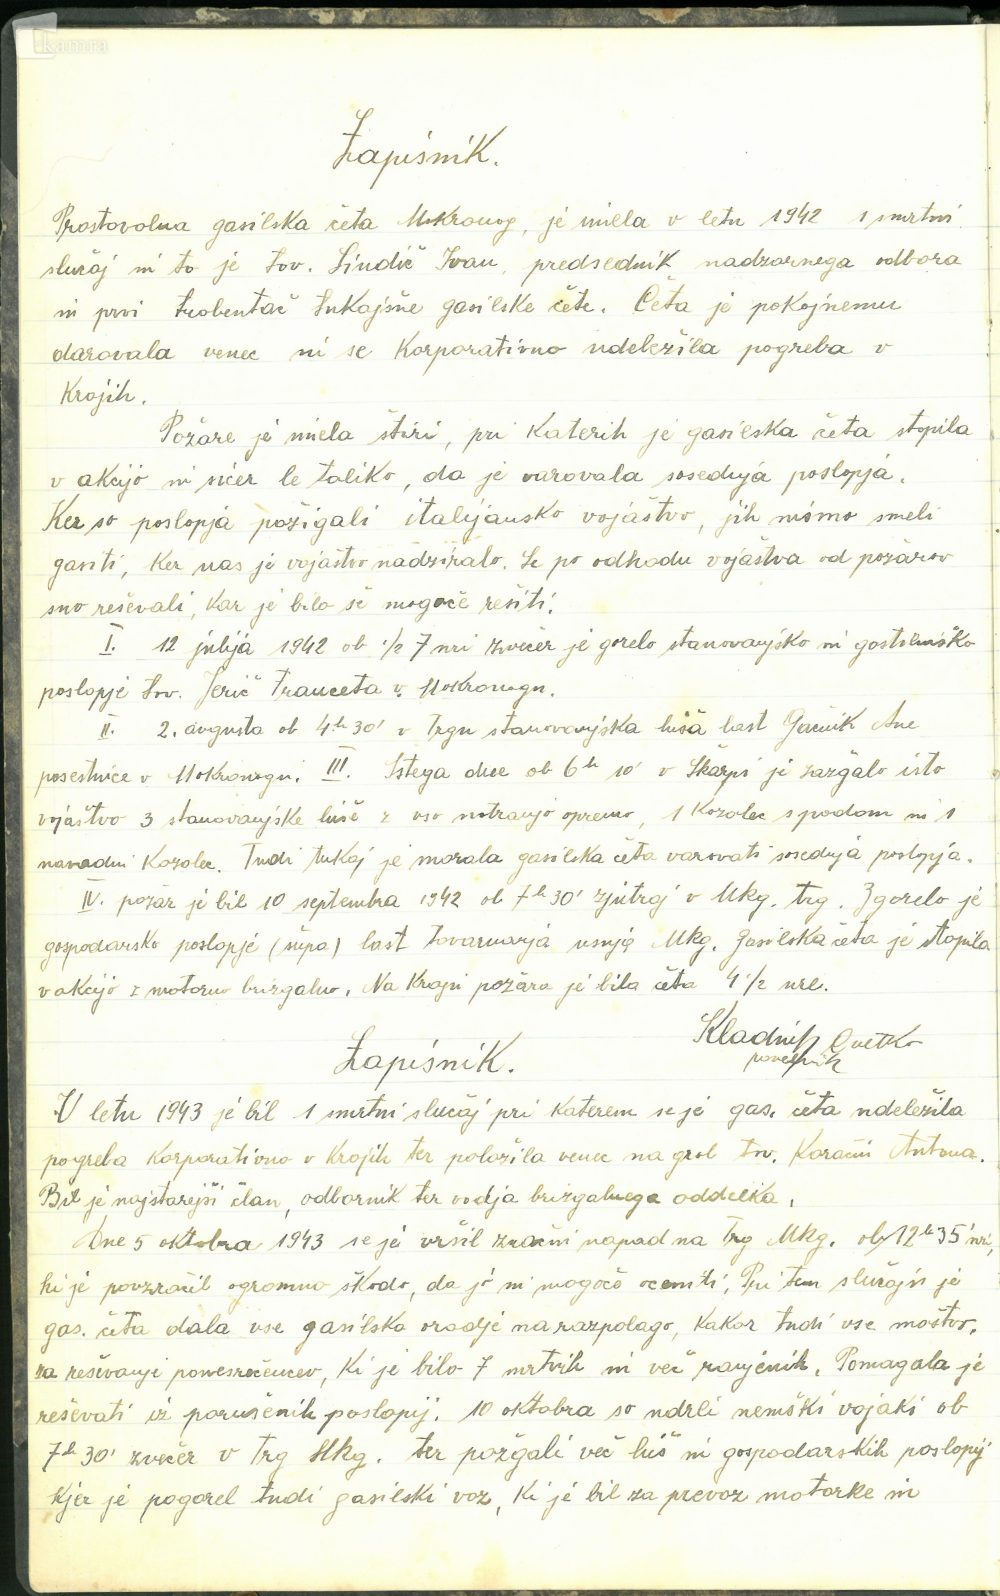 kamra
Zapisnik.
Prostovolna gasilska četa Mokronog, je imela v letu 1942 1 smrtni
slučaj in to je tov. Sindič Ivan, predsednik nadzornega odbora
in prvi trobentač tukajšne gasilske čete. Četa je pokojnemu
darovala venec in se korporativno udeležila pogreba v
krojih.
Požare je imela štiri, pri katerih je gasilska četa stopila
v akcijo in sicer le toliko, da je varovala sosednja poslopja.
Ker so poslopja požigali italijansko vojaštvo, jih nismo smeli
gasiti, ker nas je vojaštvo nadziralo. Le po odhodu vojaštva od požarov
smo reševali, kar je bilo še mogoče rešiti.
I. 12 julija 1942 ob 1/2 7 uri zvečer je gorelo stanovanjsko in gostilniško
poslopje tov. Jerič Franceta v Mokronogu.
II. 2. avgusta ob 4h 30' v Trgu stanovanjska hiša last Ane
posestnice v Mokronogu. III. Istega dne ob 6h 10' v Škarpi je zažgalo isto
vojaštvo 3 stanovanjske hiše z vso notranjo opremo, 1 kozolec s podom in 1
navadni kozolec. Tudi tukaj je morala gasilska četa varovati sosednja poslopja.
IV. požar je bil 10 septembra 1942 ob 7h 30' zjutraj v Mkg. trg. Zgorelo je
gospodarsko poslopje (šupa) last tovarnarja usnja Mkg. Gasilska četa je stopila
v akcijo z motorno brizgalno. Na kraju požara je bila četa 4 1/2 ure.
Kladnik Cvetko
poveljnik
Zapisnik.
V letu 1943 je bil 1 smrtni slučaj pri katerem se je gas. četa udeležila
pogreba korporativno v krojih ter položila venec na grob tov. Antona.
Bil je najstarejši član, odbornik ter vodja brizgalnega oddelka.
Dne 5 oktobra 1943 se je vršil zračni napad na trg Mkg. ob 12h 35' uri,
ki je povzročil ogromno škodo, da jo ni mogoče oceniti. Pri tem slučaju je
gas. četa dala vse gasilsko orodje na razpolago, kakor tudi vse moštvo,
za reševanje ponesrečencev, ki je bilo 7 mrtvih in več ranjenih. Pomagala je
reševati iz porušenih poslopij. 10 oktobra so udrli nemški vojaki ob
7h 30' zvečer v trg Mkg. ter požgali več hiš in gospodarskih poslopij
kjer je pogorel tudi gasilski voz, ki je bil za prevoz motorke in